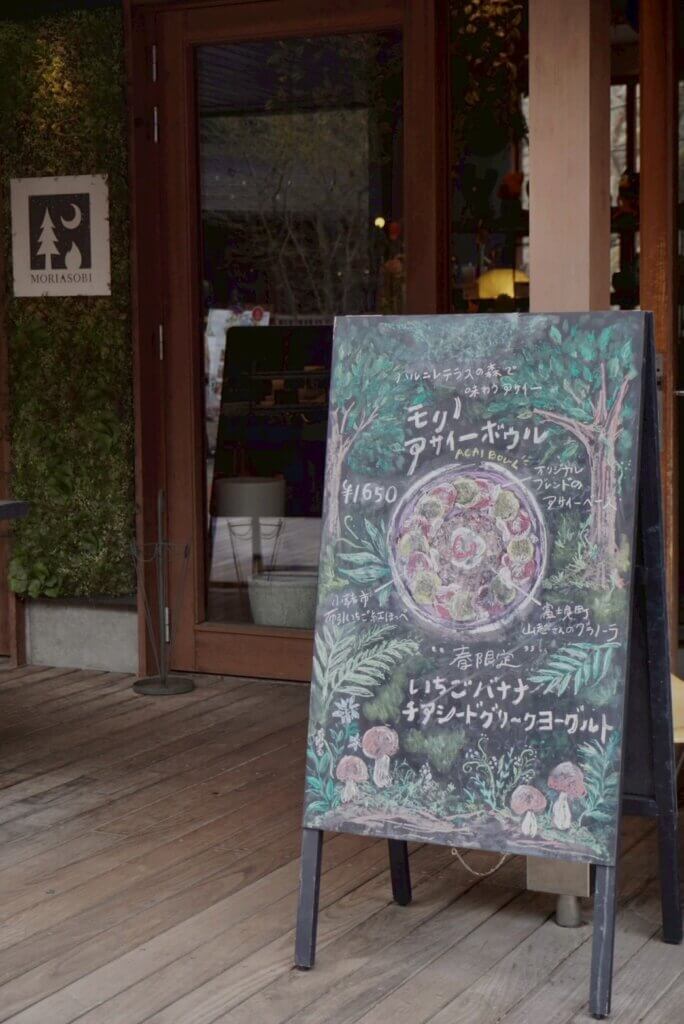 MORIASOBI
ハルニレテラスの森で
味わうアサイー
モリノ
アサイーボウル
ACAI BOWL
¥1650
オリジナル
ブレンドの
アサイーベース
小諸市
布引いちご紅ほっぺ
富士見町
山越さんのグラノーラ
"春限定"
いちごバナナ
チアシードグリークヨーグルト